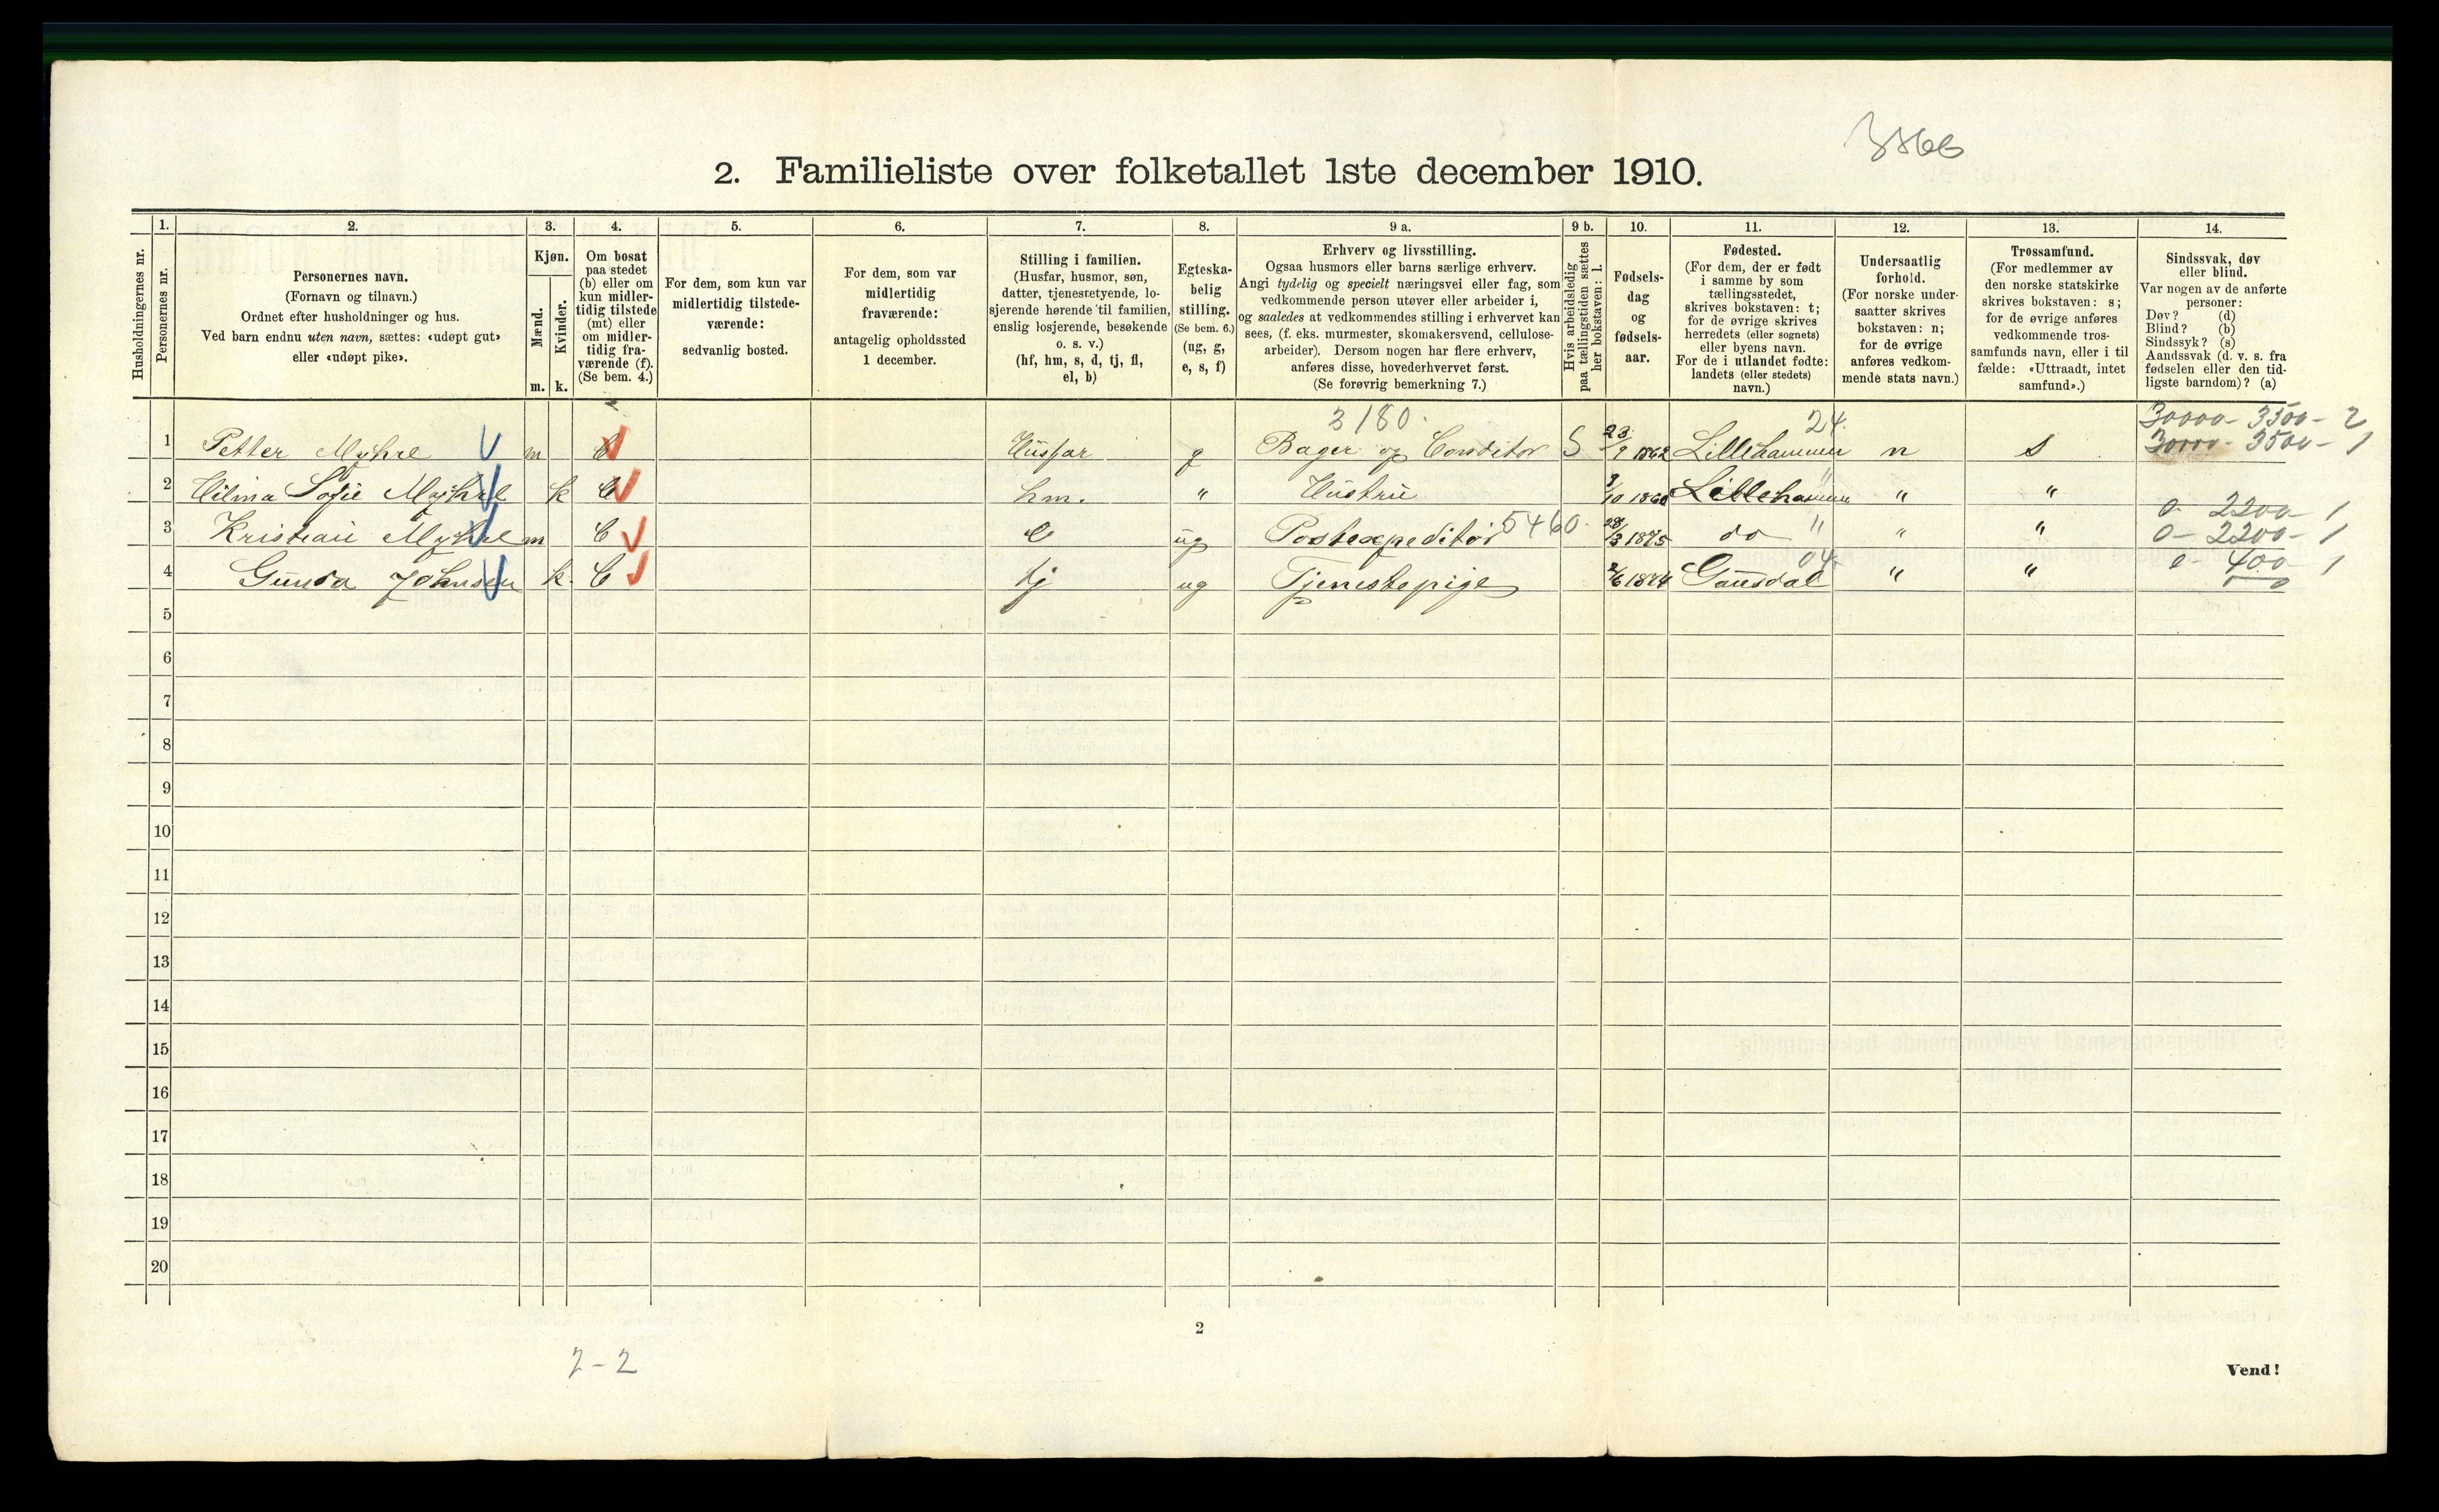 3866
2. Familieliste over folketallet 1ste december 1910.
Husholdningernes nr.
1. Personernes nr.
2. Personernes navn. (Fornavn og tilnavn.) Ordnet efter husholdninger og hus. Ved barn endnu uten navn, sættes: «udøpt gut» eller «udøpt pike».
3. Kjøn. Mænd. m. Kvinder. k.
4. Om bosat paa stedet (b) eller om kun midlertidig tilstede (mt) eller om midlertidig fraværende (f). (Se bem. 4.)
5. For dem, som kun var midlertidig tilstedeværende: sedvanlig bosted.
6. For dem, som var midlertidig fraværende: antagelig opholdssted 1 december.
7. Stilling i familien. (Husfar, husmor, søn, datter, tjenestetyende, losjerende hørende til familien, enslig losjerende, besøkende o. s. v.) (hf, hm, s, d, tj, fl, el, b)
8. Egteskabelig stilling. (Se bem. 6.) (ug, g, e, s, f)
9 a. Erhverv og livsstilling. Ogsaa husmors eller barns særlige erhverv. Angi tydelig og specielt næringsvei eller fag, som vedkommende person utøver eller arbeider i, og saaledes at vedkommendes stilling i erhvervet kan sees, (f. eks. murmester, skomakersvend, cellulosearbeider). Dersom nogen har flere erhverv, anføres disse, hovederhvervet først. (Se forøvrig bemerkning 7.)
9 b. Hvis arbeidsledig paa tællingstiden sættes her bokstaven: l.
10. Fødselsdag og fødselsaar.
11. Fødested. (For dem, der er født i samme by som tællingsstedet, skrives bokstaven: t; for de øvrige skrives herredets (eller sognets) eller byens navn. For de i utlandet fødte: landets (eller stedets) navn.)
12. Undersaatlig forhold. (For norske undersaatter skrives bokstaven: n; for de øvrige anføres vedkommende stats navn.)
13. Trossamfund. (For medlemmer av den norske statskirke skrives bokstaven: s; for de øvrige anføres vedkommende trossamfunds navn, eller i tilfælde: «Uttraadt, intet samfund».)
14. Sindssvak, døv eller blind. Var nogen av de anførte personer: Døv? (d) Blind? (b) Sindssyk? (s) Aandssvak (d. v. s. fra fødselen eller den tidligste barndom)? (a)
3180. 24. 30000- 3500- 2
1 Petter Myhre m b Husfar g Bager og Conditor S 23/9 1862 Lillehammer n s 30000- 3500- 1
2 Hilma Sofie Myhre k b hm. " Hustru 9/10 1860 Lillehammer " "
5460. " 0- 2200- 1
3 Kristian Myhre m b ug Postexpeditør 28/3 1875 do " " 0- 2200- 1
04. 0- 400- 1
4 Gunda Johnsen k. b tj ug Tjenestepige 2/6 1884 Gausdal " "
5
6
7
8
9
10
11
12
13
14
15
16
17
18
19
20
2
2-2
Vend!